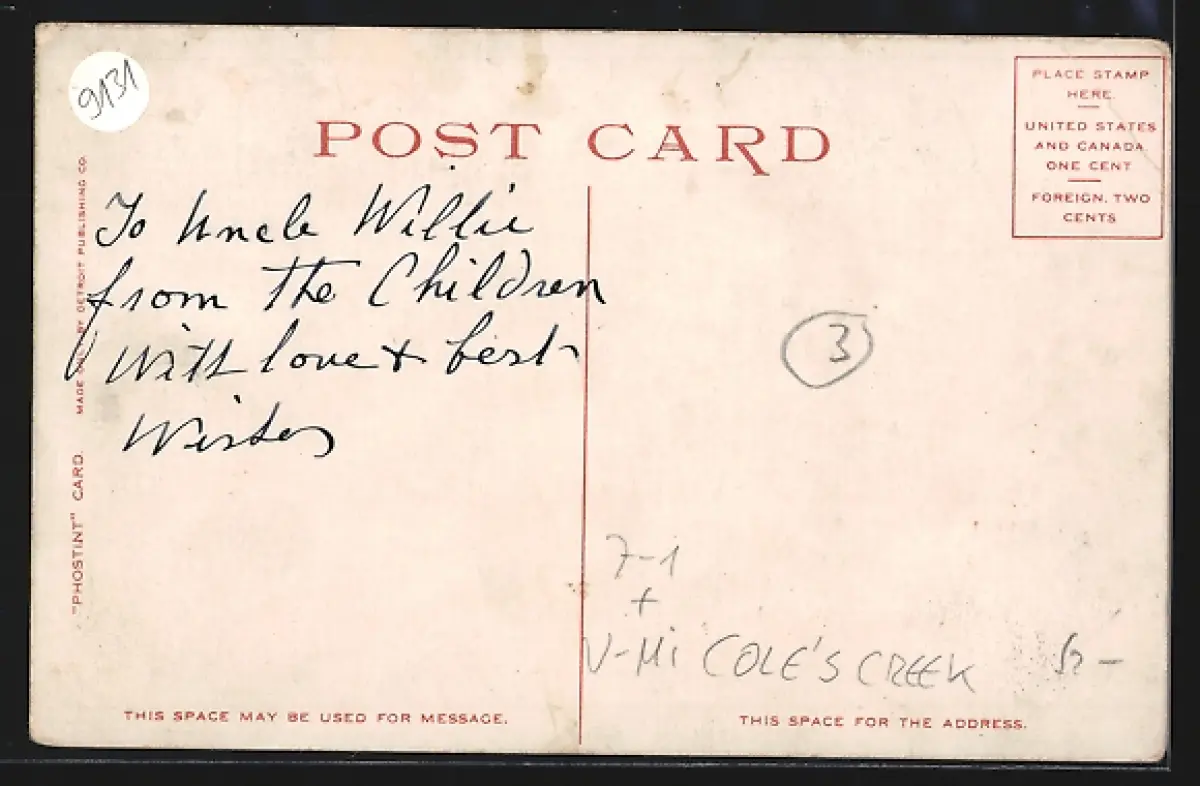 9131
POST CARD
PLACE STAMP
HERE
UNITED STATES
AND CANADA
ONE CENT
FOREIGN, TWO
CENTS
To Uncle Willie
from the Children
With love + best
Wishes
"PHOSTINT" CARD. MADE ONLY BY DETROIT PUBLISHING CO.
3
7-1
+
V-Mi COLE'S CREEK
THIS SPACE MAY BE USED FOR MESSAGE.
THIS SPACE FOR THE ADDRESS.